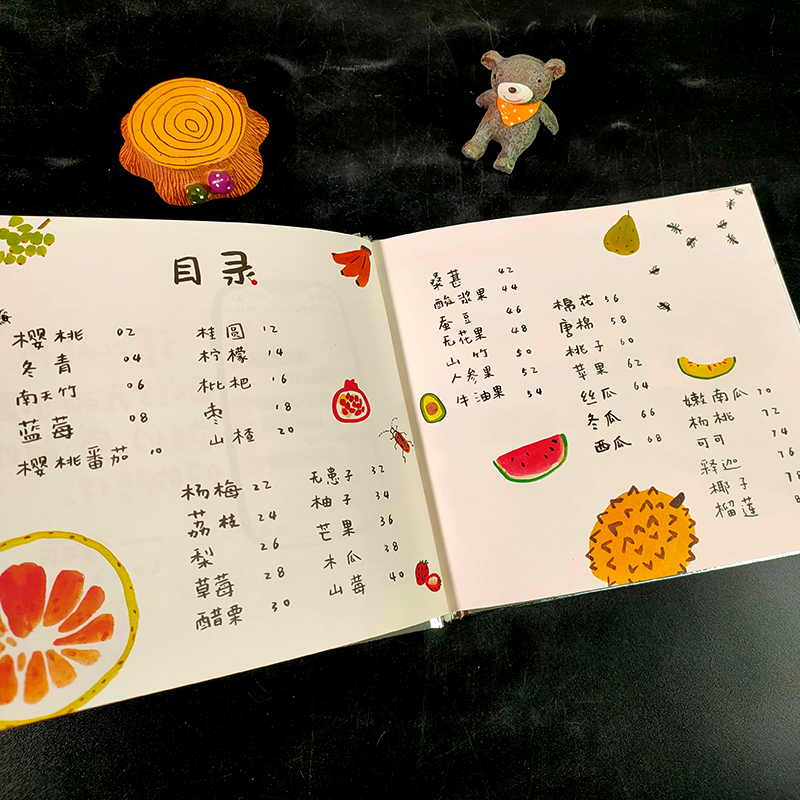 目录
樱桃 02
冬青 04
南天竹 06
蓝莓 08
樱桃番茄 10
桂圆 12
柠檬 14
枇杷 16
枣 18
山楂 20
杨梅 22
荔枝 24
梨 26
草莓 28
醋栗 30
无患子 32
柚子 34
芒果 36
木瓜 38
山莓 40
桑葚 42
酸浆果 44
蚕豆 46
无花果 48
山竹 50
人参果 52
牛油果 54
棉花 56
唐棉 58
桃子 60
苹果 62
丝瓜 64
冬瓜 66
西瓜 68
嫩南瓜 70
杨桃 72
可可 74
释迦 76
椰子 78
榴莲